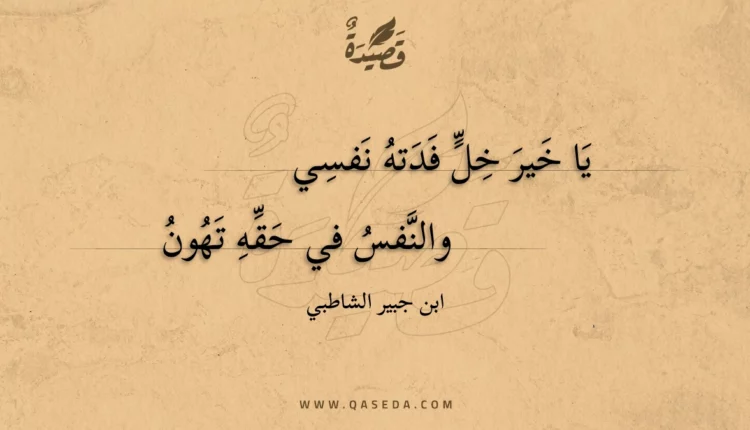 قَصِيدَةٌ
يَا خَيرَ خِلٍّ فَدَتهُ نَفسِي
والنَّفسُ في حَقِّهِ تَهُونُ
ابن جبير الشاطبي
WWW.QASEDA.COM